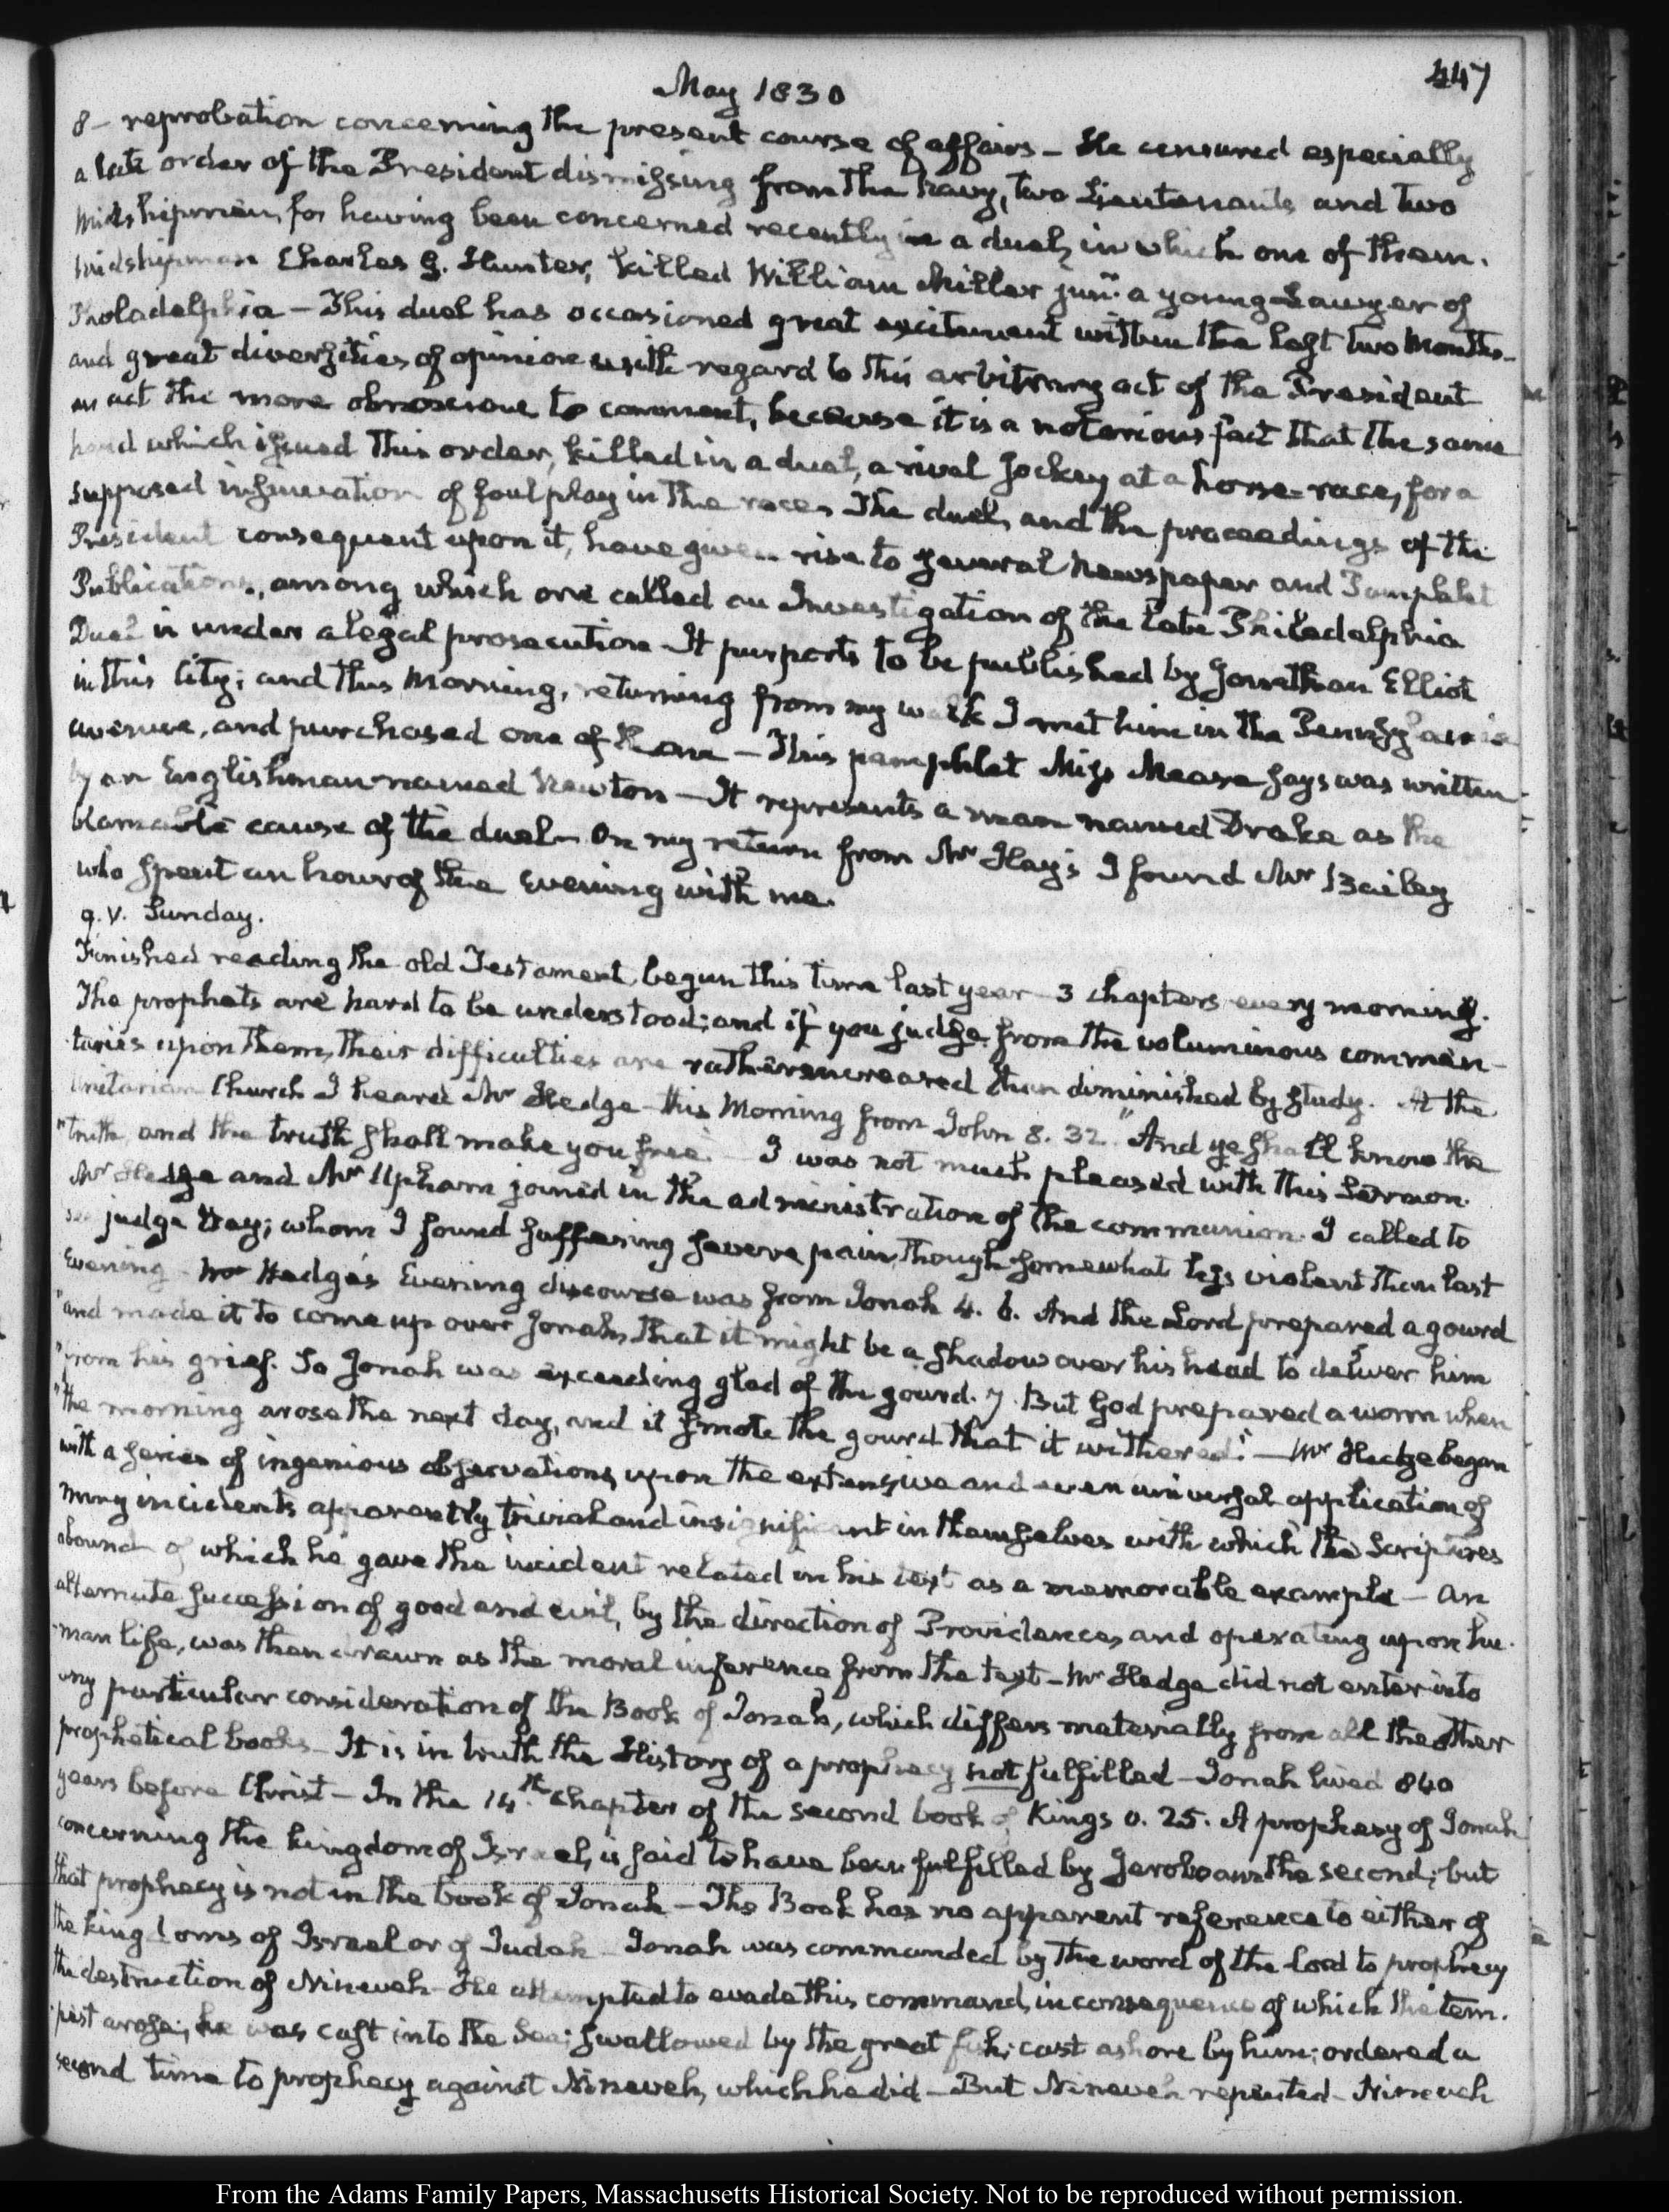 447
May 1830
8 – reprobation concerning the present course of affairs – He censured especially
a late order of the President dismissing from the Navy, two Lieutenants and two
Midshipmen, for having been concerned recently in a duel, in which one of them.
Midshipman Charles G. Hunter, killed William Miller junr. a young Lawyer of
Pholadelphia – This duel has occasioned great excitement within the last two Months –
and great diversities of opinion with regard to this arbitrary act of the President
an act the more obnoxious to comment, because it is a notorious fact that the same
hand which issued this order, killed in a duel, a rival Jockey at a horse-race, for a
supposed insinuation of foul play in the race. The duel, and the proceedings of the
President consequent upon it, have given rise to several Newspaper and Pamphlet
Publications, among which one called an Investigation of the late Philadelphia
Duel is under a legal prosecution – It purports to be published by Jonathan Elliot
in this City; and this Morning, returning from my walk I met him in the Pennsylvania
avenue, and purchased one of them – This pamphlet Miss Mease says was written
by an Englishman named Newton – It represents a man named Drake as the
blamable cause of the duel – On my return from Mr Hay's I found Mr Bailey
who spent an hour of the Evening with me.
9. V. Sunday.
Finished reading the old Testament, begun this time last year – 3 chapters every morning.
The prophets are hard to be understood; and if you judge from the voluminous commen-
taries upon them, their difficulties are rather increased than diminished by study. At the
Unitarian Church I heard Mr Hedge this Morning from John 8. 32. "And ye shall know the
"truth, and the truth shall make you free." I was not much pleased with this Sermon.
Mr Hedge and Mr Upham joined in the administration of the communion. I called to
see judge Hay; whom I found suffering severe pain, though somewhat less violent than last
Evening – Mr Hedge's Evening discourse was from Jonah 4. 6. And the Lord prepared a gourd
"and made it to come up over Jonah, that it might be a shadow over his head to deliver him
"from his grief. So Jonah was exceeding glad of the gourd. 7. But God prepared a worm when
"the morning arose the next day, and it smote the gourd that it withered." – Mr Hedge began
with a series of ingenious observations upon the extensive and even universal application of
many incidents apparently trivial and insignificant in themselves with which the Scriptures
abound of which he gave the incident related in his text as a memorable example – An
alternate succession of good and evil, by the direction of Providence, and operating upon hu-
man life, was then drawn as the moral inference from the text – Mr Hedge did not enter into
any particular consideration of the Book of Jonah, which differs materially from all the other
prophetical books – It is in truth the History of a prophecy not fulfilled – Jonah lived 840
years before Christ – In the 14.th Chapter of the second book of Kings v. 25. A prophesy of Jonah
concerning the kingdom of Israel, is said to have been fulfilled by Jeroboam the second; but
that prophecy is not in the book of Jonah – The Book has no apparent reference to either of
the kingdoms of Israel or of Judah – Jonah was commanded by the word of the Lord to prophecy
the destruction of Nineveh – He attempted to evade this command, in consequence of which the tem-
pest arose; he was cast into the Sea; swallowed by the great fish; cast ashore by him; ordered a
second time to prophecy against Nineveh, which he did – But Nineveh repented – Nineveh
From the Adams Family Papers, Massachusetts Historical Society. Not to be reproduced without permission.